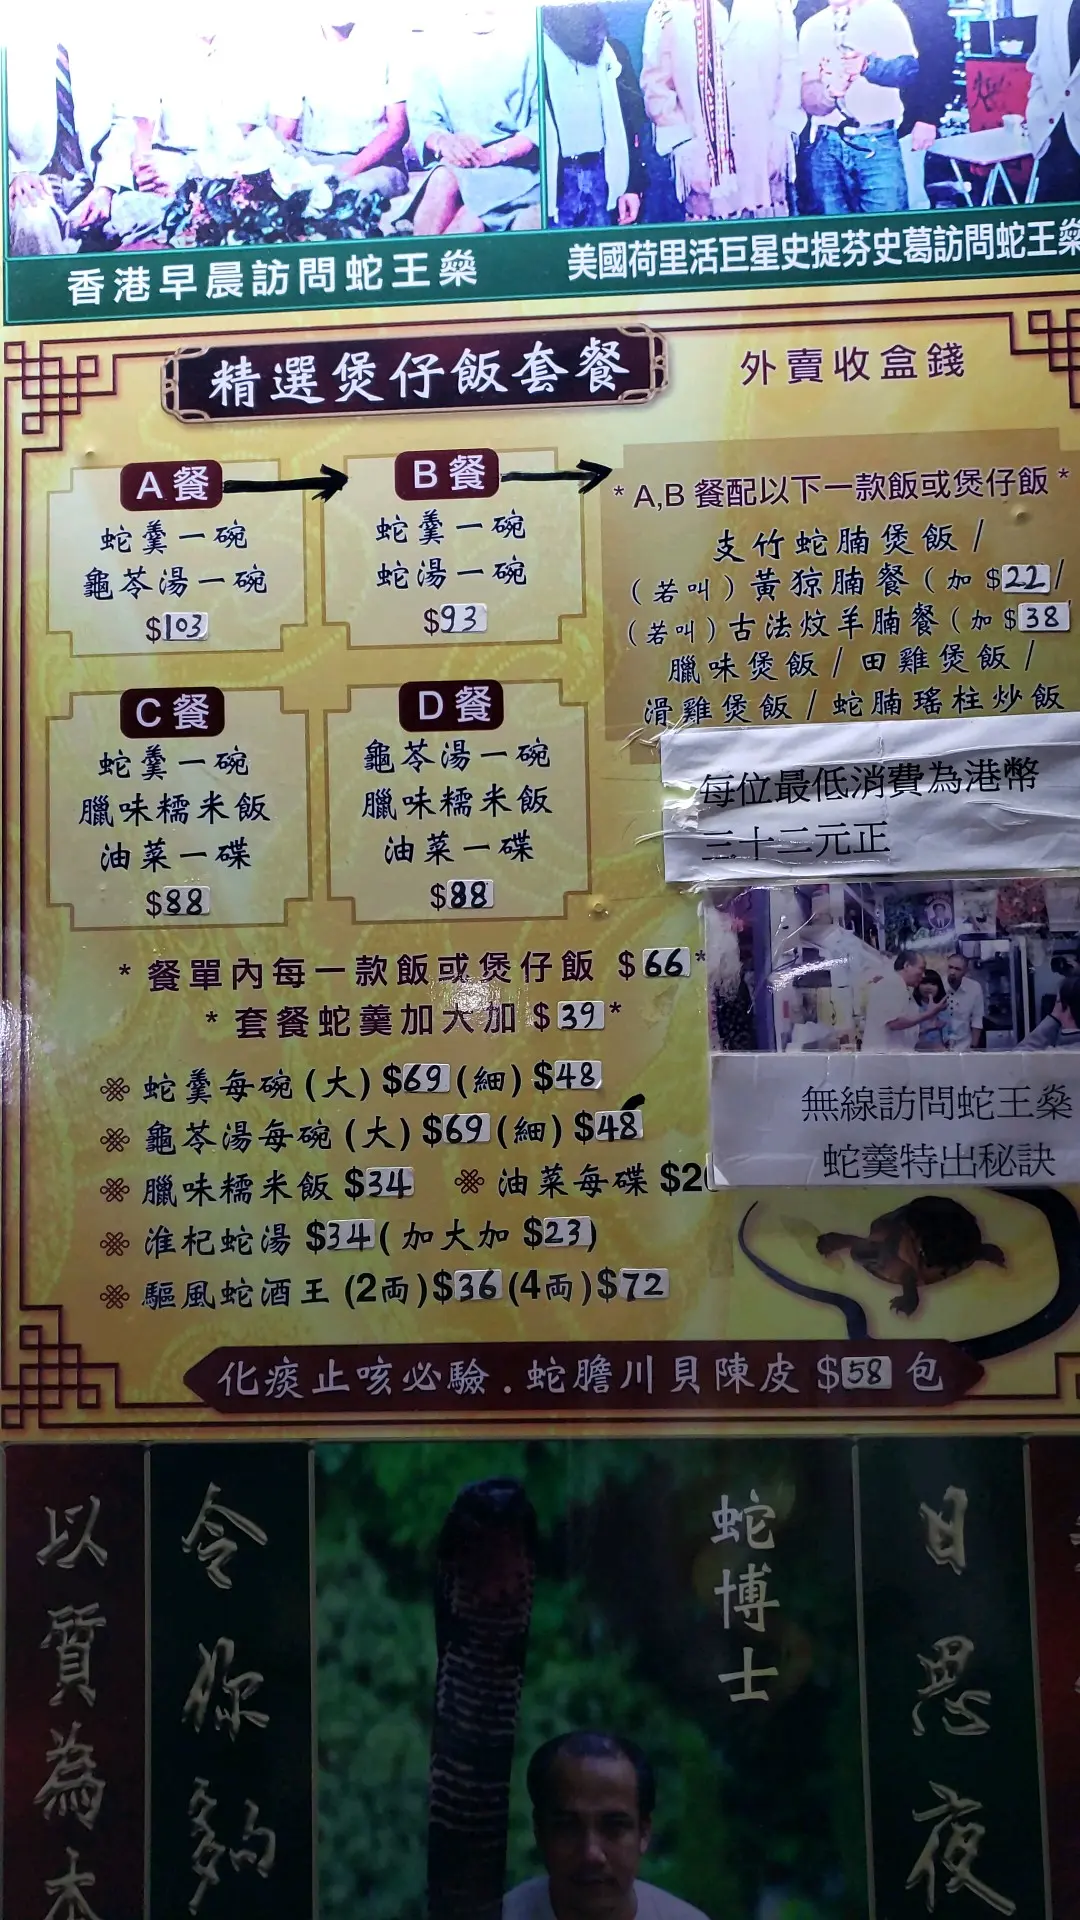 香港早晨訪問蛇王燊
美國荷里活巨星史提芬史葛訪問蛇王燊
精選煲仔飯套餐
外賣收盒錢
A餐
蛇羹一碗
龜苓湯一碗
$103
B餐
蛇羹一碗
蛇湯一碗
$93
*A,B 餐配以下一款飯或煲仔飯*
支竹蛇腩煲飯/
(若叫)黃猄腩餐(加$22/
(若叫)古法炆羊腩餐(加$38
臘味煲飯/田雞煲飯/
滑雞煲飯/蛇腩瑤柱炒飯
C餐
蛇羹一碗
臘味糯米飯
油菜一碟
$88
D餐
龜苓湯一碗
臘味糯米飯
油菜一碟
$88
每位最低消費為港幣
三十二元正
*餐單內每一款飯或煲仔飯 $66*
*套餐蛇羹加大加 $39*
蛇羹每碗(大)$69(細)$48
龜苓湯每碗(大)$69(細)$48
臘味糯米飯 $34 油菜每碟
淮杞蛇湯 $34(加大加 $23)
驅風蛇酒王(2両)$36(4両)$72
無線訪問蛇王燊
蛇羹特出秘訣
化痰止咳必驗.蛇膽川貝陳皮 $58 包
以質為本
令你夠
蛇博士
日思夜